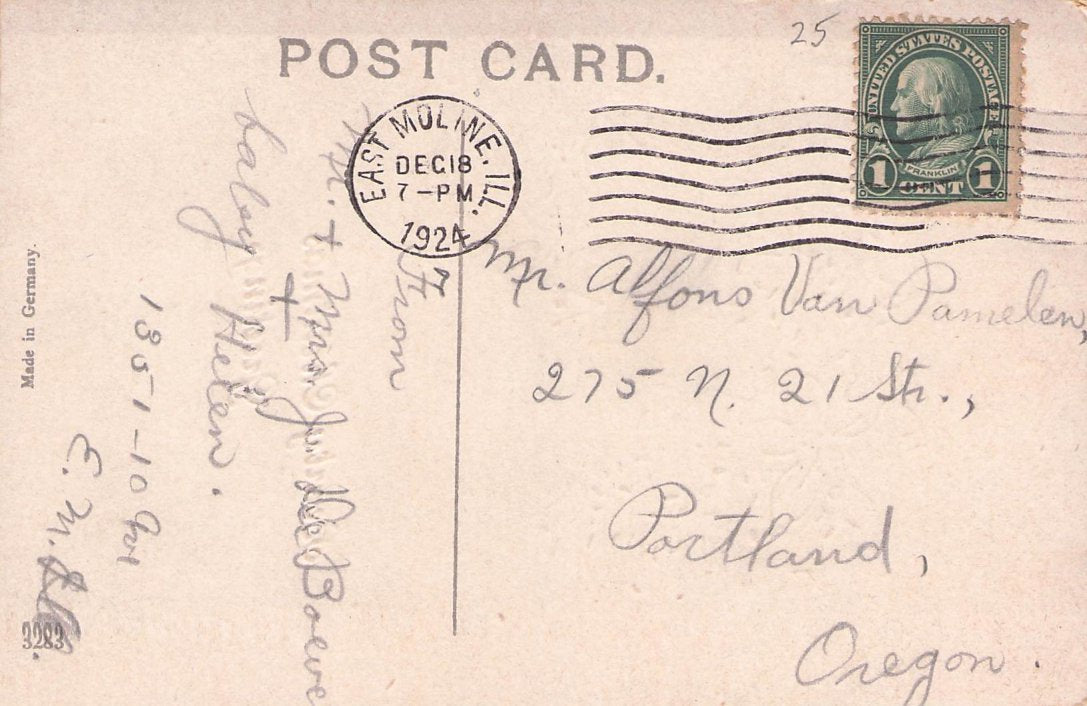 25
POST CARD.
UNITED STATES POSTAGE
FRANKLIN
1 CENT 1
EAST MOLINE, ILL.
DEC 18
7-PM
1924
Mr. Alfons Van Pamelen,
275 N. 21 St.,
Portland,
Oregon.
From
Mr. + Mrs. J. De Boeve
+
baby Helen.
1351-10 Av
E. M. Ill.
Made in Germany.
3283